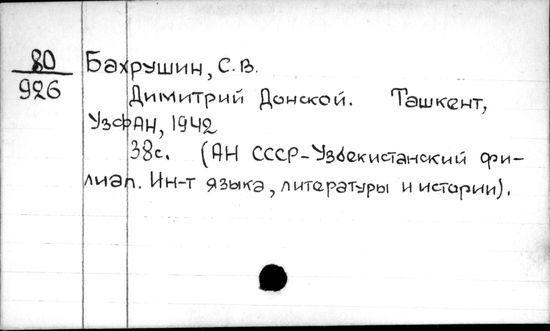 80
926
Бахрушин, С.В.
Димитрий Донской. Ташкент,
УзФАН, 1942
38с. (АН СССР-Узбекистанский фи-
лиал. Ин-т языка, литературы и истории).